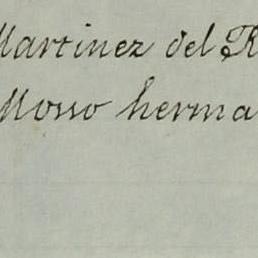 Martinez del R
Mosso herma